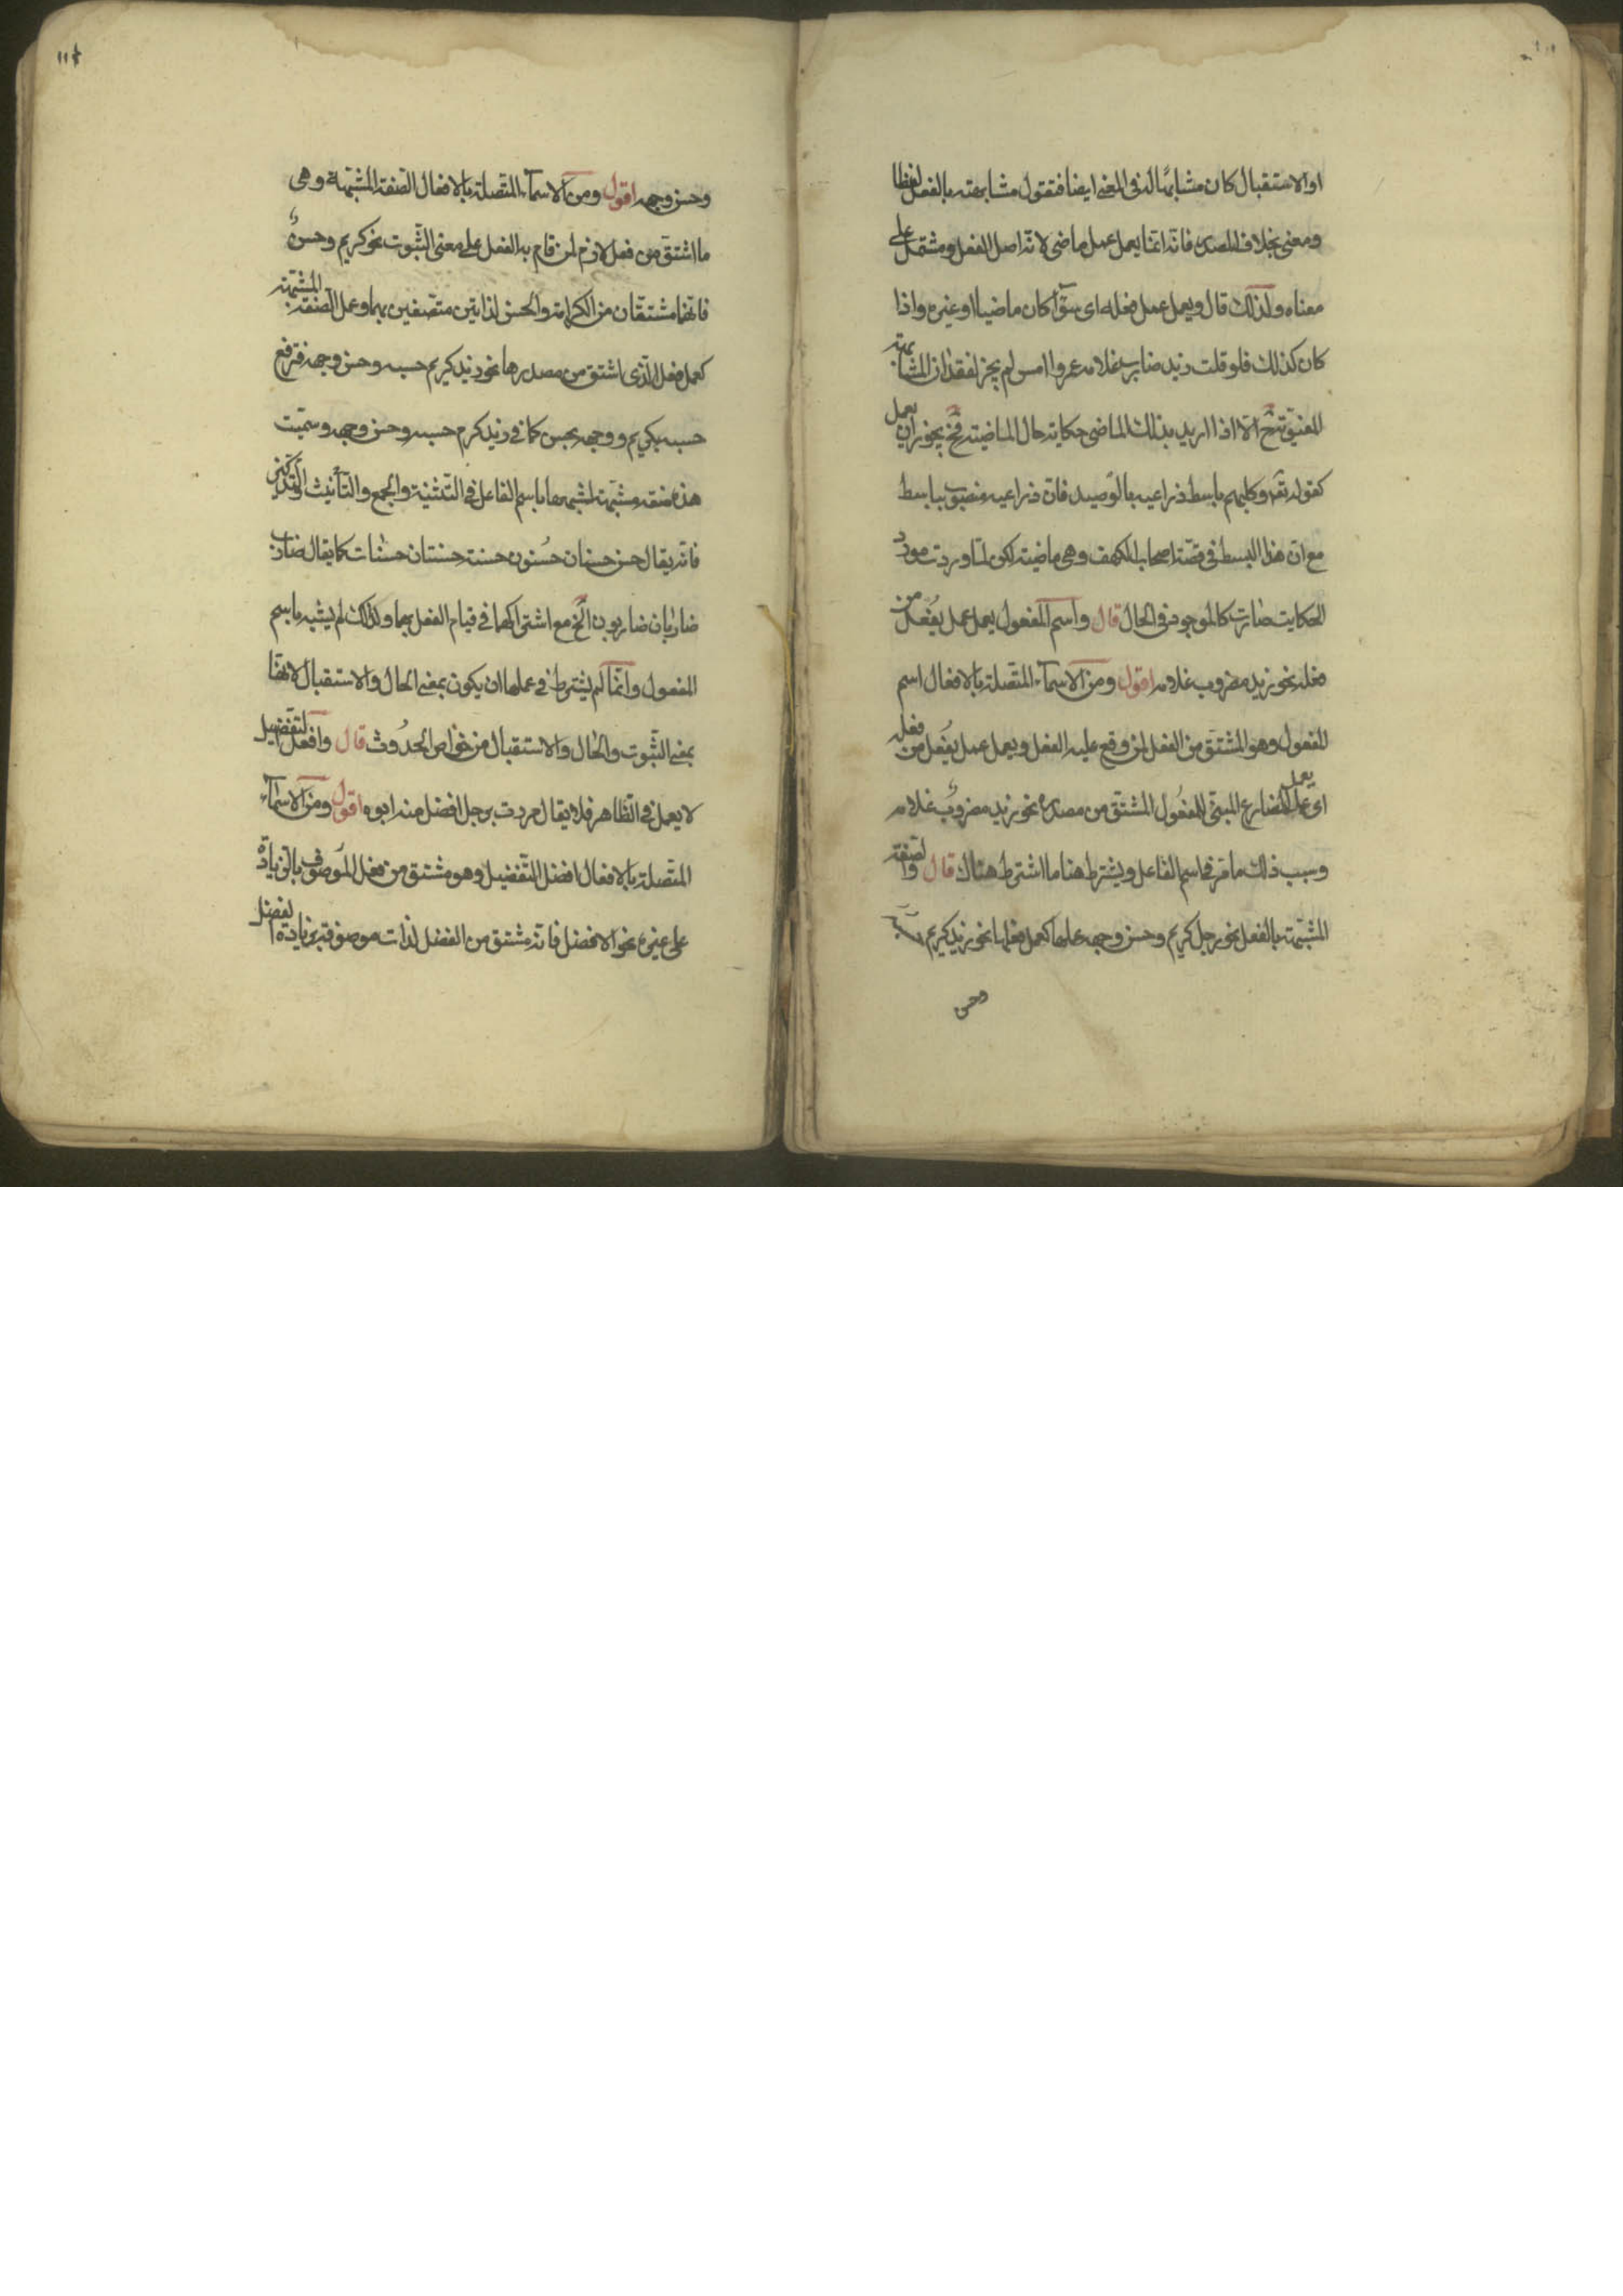 او الاستقبال كان مشابها له فى المعنى ايضا فتقول مشابهته بالفعل لفظا
ومعنى بخلاف المصدر فانه انما يعمل عمل ماضى لانه اصل الفعل ومشتمل على
معناه ولذلك قال ويعمل عمل فعله اى سوآء كان ماضيا او غيره واذا
كان كذلك فلو قلت زيد ضارب غلامه عمروا امس لم يجز لفقدان المشابهة
المعنوية ح الا اذا اريد بذلك الماضى حكاية حال الماضية فح يجوز ان يعمل
كقوله تعه وكلبهم باسط ذراعيه بالوصيد فان ذراعيه منصوب بباسط
مع ان هذا البسط فى قصة اصحاب الكهف وهى ماضية لكن لما وردت مورد
الحكايت صارت كالموجود فى الحال قال واسم المفعول يعمل عمل يُفعَل من
فعله نحو زيد مضروب غلامه اقول ومن الاسمآء المتصلة بالافعال اسم
المفعول وهو المشتق من الفعل لمن وقع عليه الفعل ويعمل عمل يُفعل من فعله
اى يعمل عمل المضارع المبنى للمفعُول المشتق من مصدره نحو زيد مضروبٌ غلامه
وسبب ذلك ما مر فى اسم الفاعل ويشترط هنا ما اشترط هناك قال والصفة
المشبهة بالفعل نحو رجل كريم وحسن وجهه عملها كعمل فعلها نحو زيد كريم
وحسن
١١٤
وحسن وجهه اقول ومن الاسمآء المتصلة بالافعال الصفة المشبهة وهى
ما اشتق من فعل لازم لمن قام به الفعل على معنى الثبوت نحو كريم وحسنٌ
فانهما مشتقان من الكرامة والحسن لذاتين متصفين بهما وعمل الصفة المشبهة
كعمل فعل الذى اشتق من مصدرها نحو زيد كريم حسبه وحسن وجهه فترفع
حسبه بكريم ووجهه بحسن كما فى زيد كرم حسبه وحسن وجهه وسميت
هذه صفة مشبهة لشبهها باسم الفاعل فى التثنية والجمع والتأنيث والتذكير
فانه يقال حسن حسنان حسُنون حسنة حسنتان حسنات كما يقال ضارب
ضاربان ضاربون الخ مع اشتراكهما فى قيام الفعل بهما ولذلك لم يشبه باسم
المفعول وانما لم يشترط فى عملها ان يكون بمعنى الحال والاستقبال لانها
بمعنى الثبوت والحال والاستقبال من خواص الحدُوث قال وافعل التفضيل
لا يعمل فى الظاهر فلا يقال مررت برجل افضل منه ابوه اقول ومن الاسمآء
المتصلة بالافعال افضل التفضيل وهو مشتق من فعل الموصوف بالزيادة
على غيره نحو الافضل فانه مشتق من الفضل لذات موصوفة بزيادة الفضل